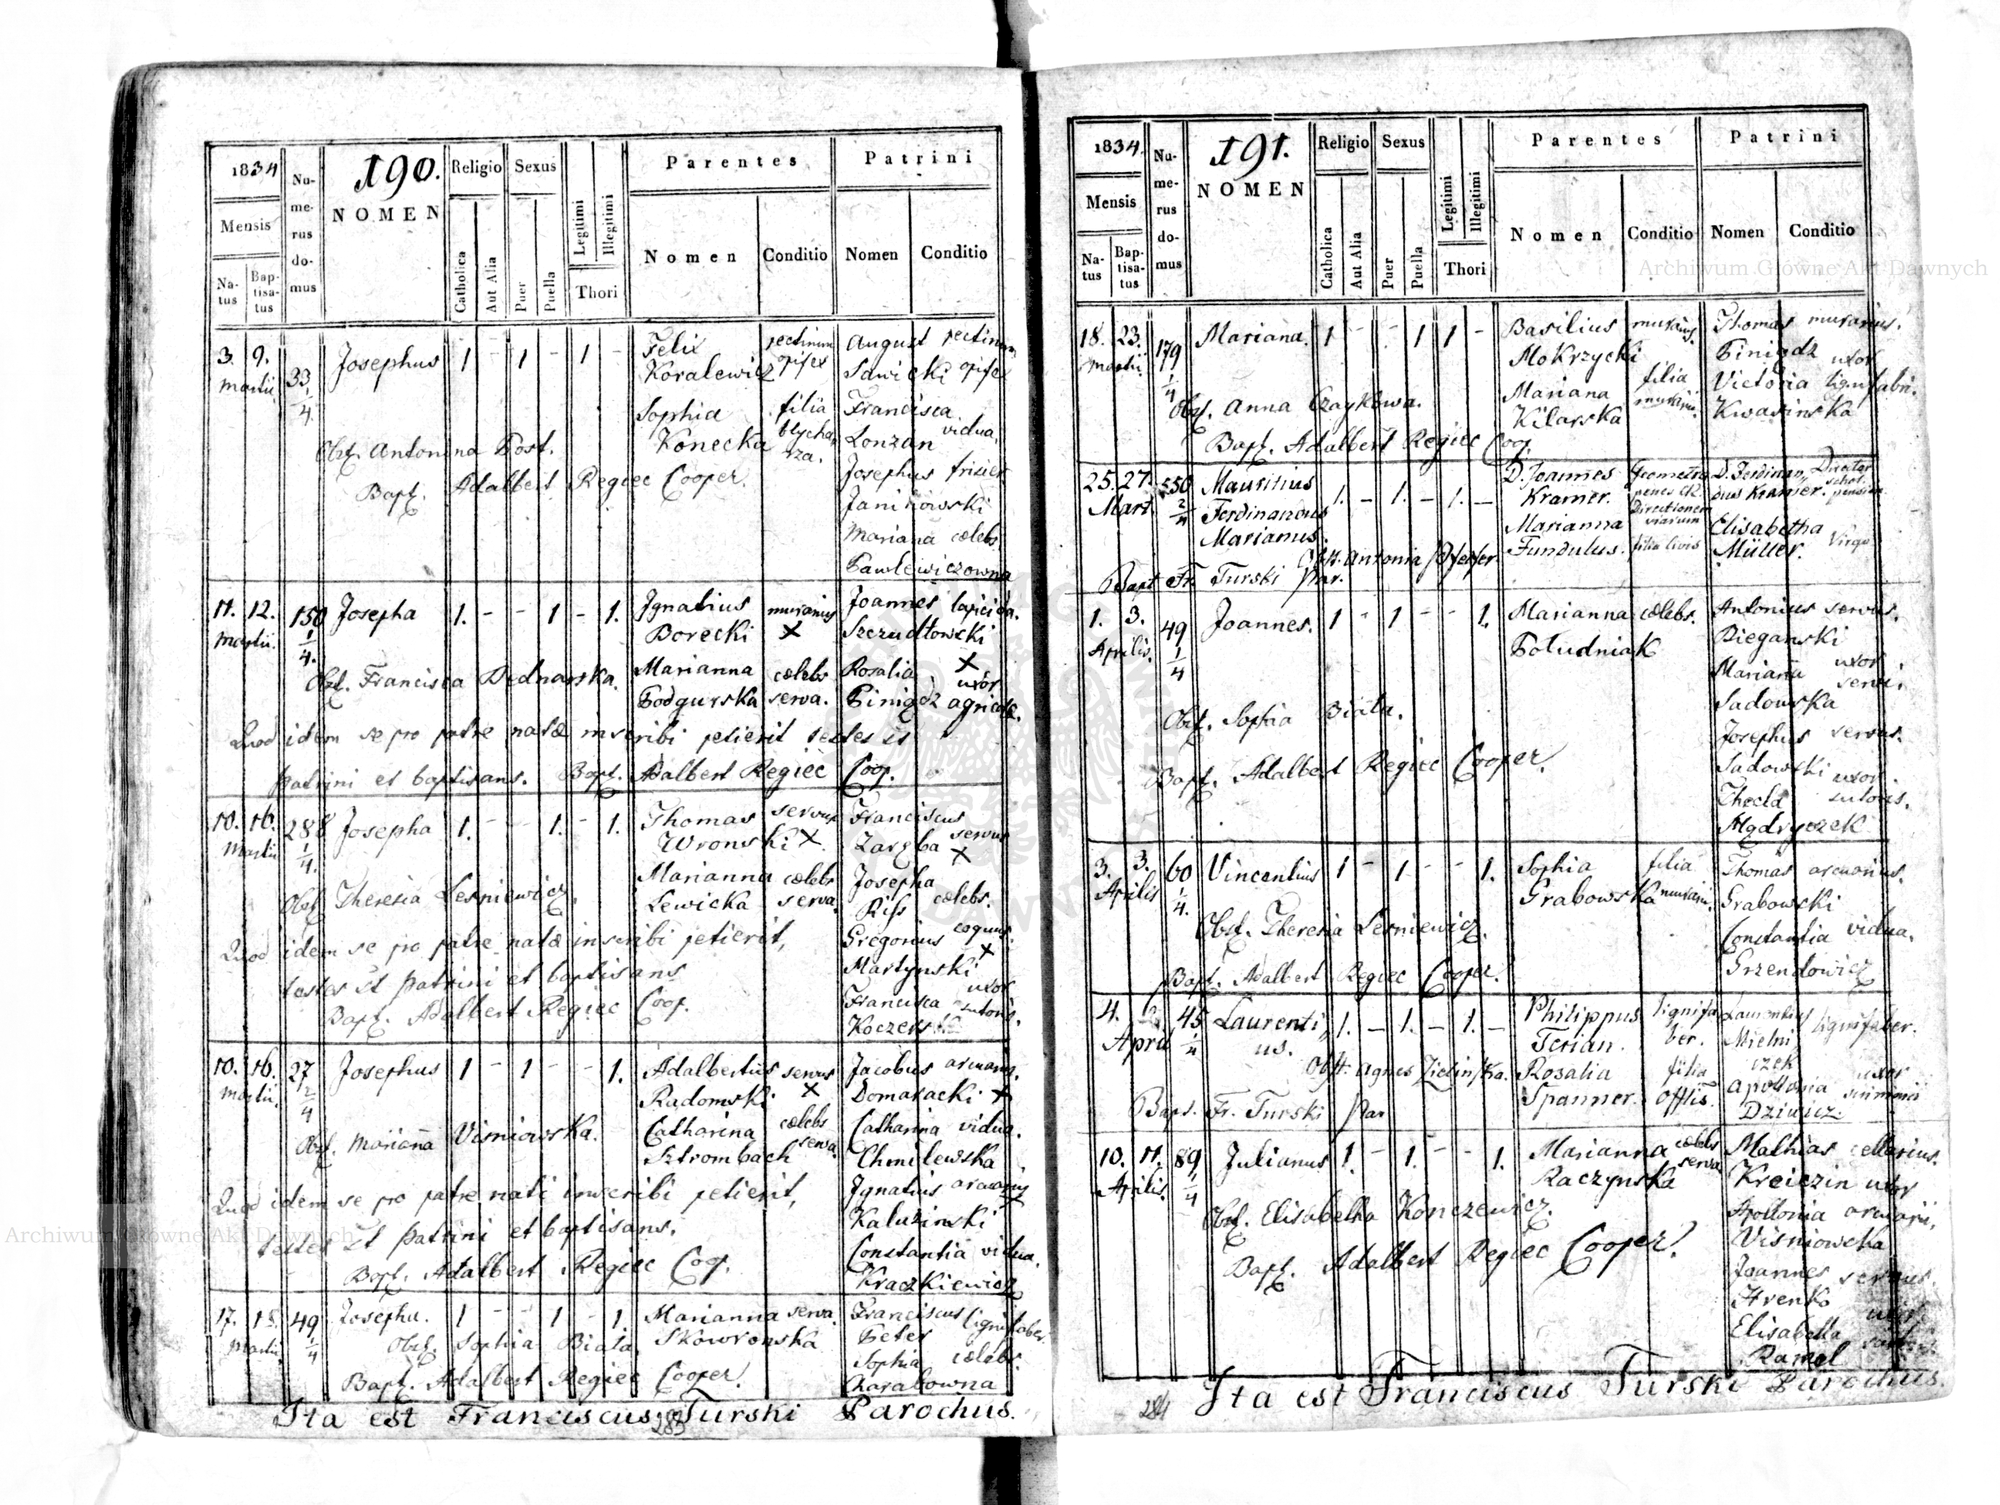 1834
Mensis
Na-
tus
Bap-
tisa-
tus
Nu-
me-
rus
do-
mus
190.
NOMEN
Religio
Catholica
Aut Alia
Sexus
Puer
Puella
Legitimi
Illegitimi
Thori
Parentes
Nomen
Conditio
Patrini
Nomen
Conditio
3. 9. Josephus 1 - 1 - 1 - Felix pectinum August pectinum
Martii 33 Koralewicz opifex Sawicki opifex
1/4
Sophia filia Francisca
Konecka blycha- Lonzan vidua.
rza.
Obst. Antonina Post.
Josephus frisier
Bapt. Adalbert Regiec Cooper.
Janikowski
Mariana cælebs
Pawlewiczowna
11. 12. 150 Josepha 1. - - 1 - 1. Ignatius murarius Joannes lapicida.
Martii. 1/4. Borecki X Szczudłowski
X
Marianna cælebs Rosalia uxor
Obst. Francisca Bednarska. Podgurska serva. Piniądz agricolæ.
Quod idem se pro patre natæ inscribi petierit testes st
patrini et baptisans. Bapt. Adalbert Regiec Coop.
10. 16. 288 Josepha 1. - - 1. - 1. Thomas servus Franciscus
Martii 1/4. Wronski X. Zaręba servus
X
Marianna cælebs Josepha
Obst. Theresia Lesniewicz. Lewicka serva. Riss cælebs.
Quod idem se pro patre natæ inscribi petierit, Gregorius coquus.
Martynski X
testes st patrini et baptisans
Francisca uxor
Bapt. Adalbert Regiec Coop. sutoris.
10. 16. 27 Josephus 1 - 1 - - 1. Adalbertus servus Jacobus arcuarius.
Martii. 2/4 Radomski X Domaracki X
Catharina cælebs Catharina vidua.
Obst. Marianna Visniowska. Sztrombach serva. Chmilewska
Quod idem se pro patre nati inscribi petierit, Ignatius arcuarius
Kaluzinski
testes st patrini et baptisans.
Constantia vidua.
Bapt. Adalbert Regiec Coop. Kraczkiewicz
17. 18. 49 Josepha. 1 - - 1 - 1. Marianna serva. Franciscus lignifaber
Martii 1/4 Obst. Sophia Biała. Skowronska Pieter
Sophia cælebs.
Bapt. Adalbert Regiec Cooper. Karabowna
Ita est Franciscus Turski Parochus.
283
1834.
Mensis
Na-
tus
Bap-
tisa-
tus
Nu-
me-
rus
do-
mus
191.
NOMEN
Religio
Catholica
Aut Alia
Sexus
Puer
Puella
Legitimi
Illegitimi
Thori
Parentes
Nomen
Conditio
Patrini
Nomen
Conditio
18. 23. 179 Mariana. 1 - - 1 1 - Basilius murarius. Thomas murarius.
Martii. 1/4 Mokrzycki Piniądz
Mariana filia Victoria uxor lignifabri.
Obst. Anna Czaykowa. Kilarska murarii. Kwasinska
Bapt. Adalbert Regiec Coop.
25. 27. 550 Mauritius 1. - 1. - 1. - D. Joannes Geometra D. Ferdinan„ Director
Mart. 2/4 Ferdinandus Kramer. penes CR. dus Kramer. schol.
Marianus. Directionem
viarum
Marianna Elisabetha
Obst. Antonia Pfeffer. Fundulus. filia civis Müller. Virgo
Bapt. Fr. Turski Par.
1. 3. 49 Joannes. 1 - 1 - - 1. Marianna cælebs. Antonius servus.
Aprilis. 1/4 Południak Bieganski
Mariana uxor
servi.
Sadowska
Obst. Sophia Biała.
Josephus servus.
Bapt. Adalbert Regiec Cooper. Sadowski
Thecla uxor
sutoris.
Mądryczek
3. 3. 60 Vincentius 1 - 1. - - 1. Sophia filia Thomas arcuarius.
Aprilis 1/4. Grabowska murarii. Grabowski
Obst. Theresia Lesniewicz. Constantia vidua.
Bapt. Adalbert Regiec Cooper. Grzendowicz
4. 45 Laurenti„ 1. - 1. - 1. - Philippus lignifa Laurentius lignifaber.
April 1/4 us. Terian. ber. Mielni„
czek
Obst. Agnes Zielinska. Rosalia filia Apollonia uxor
Bapt. Fr. Turski Par Spanner. Offlis.
10. 11. 89 Julianus 1. - 1. - - 1. Marianna cælebs Mathias cellarius.
Aprilis. 1/4 Raczynska serva Kreiczin
Apollonia uxor arcuarii.
Obst. Elisabetha Konczewicz. Visniowska
Bapt. Adalbert Regiec Cooper. Joannes servus.
Hrenko
Elisabetha uxor
Ita est Franciscus Turski Parochus.
284
Archiwum Główne Akt Dawnych
Archiwum Główne Akt Dawnych